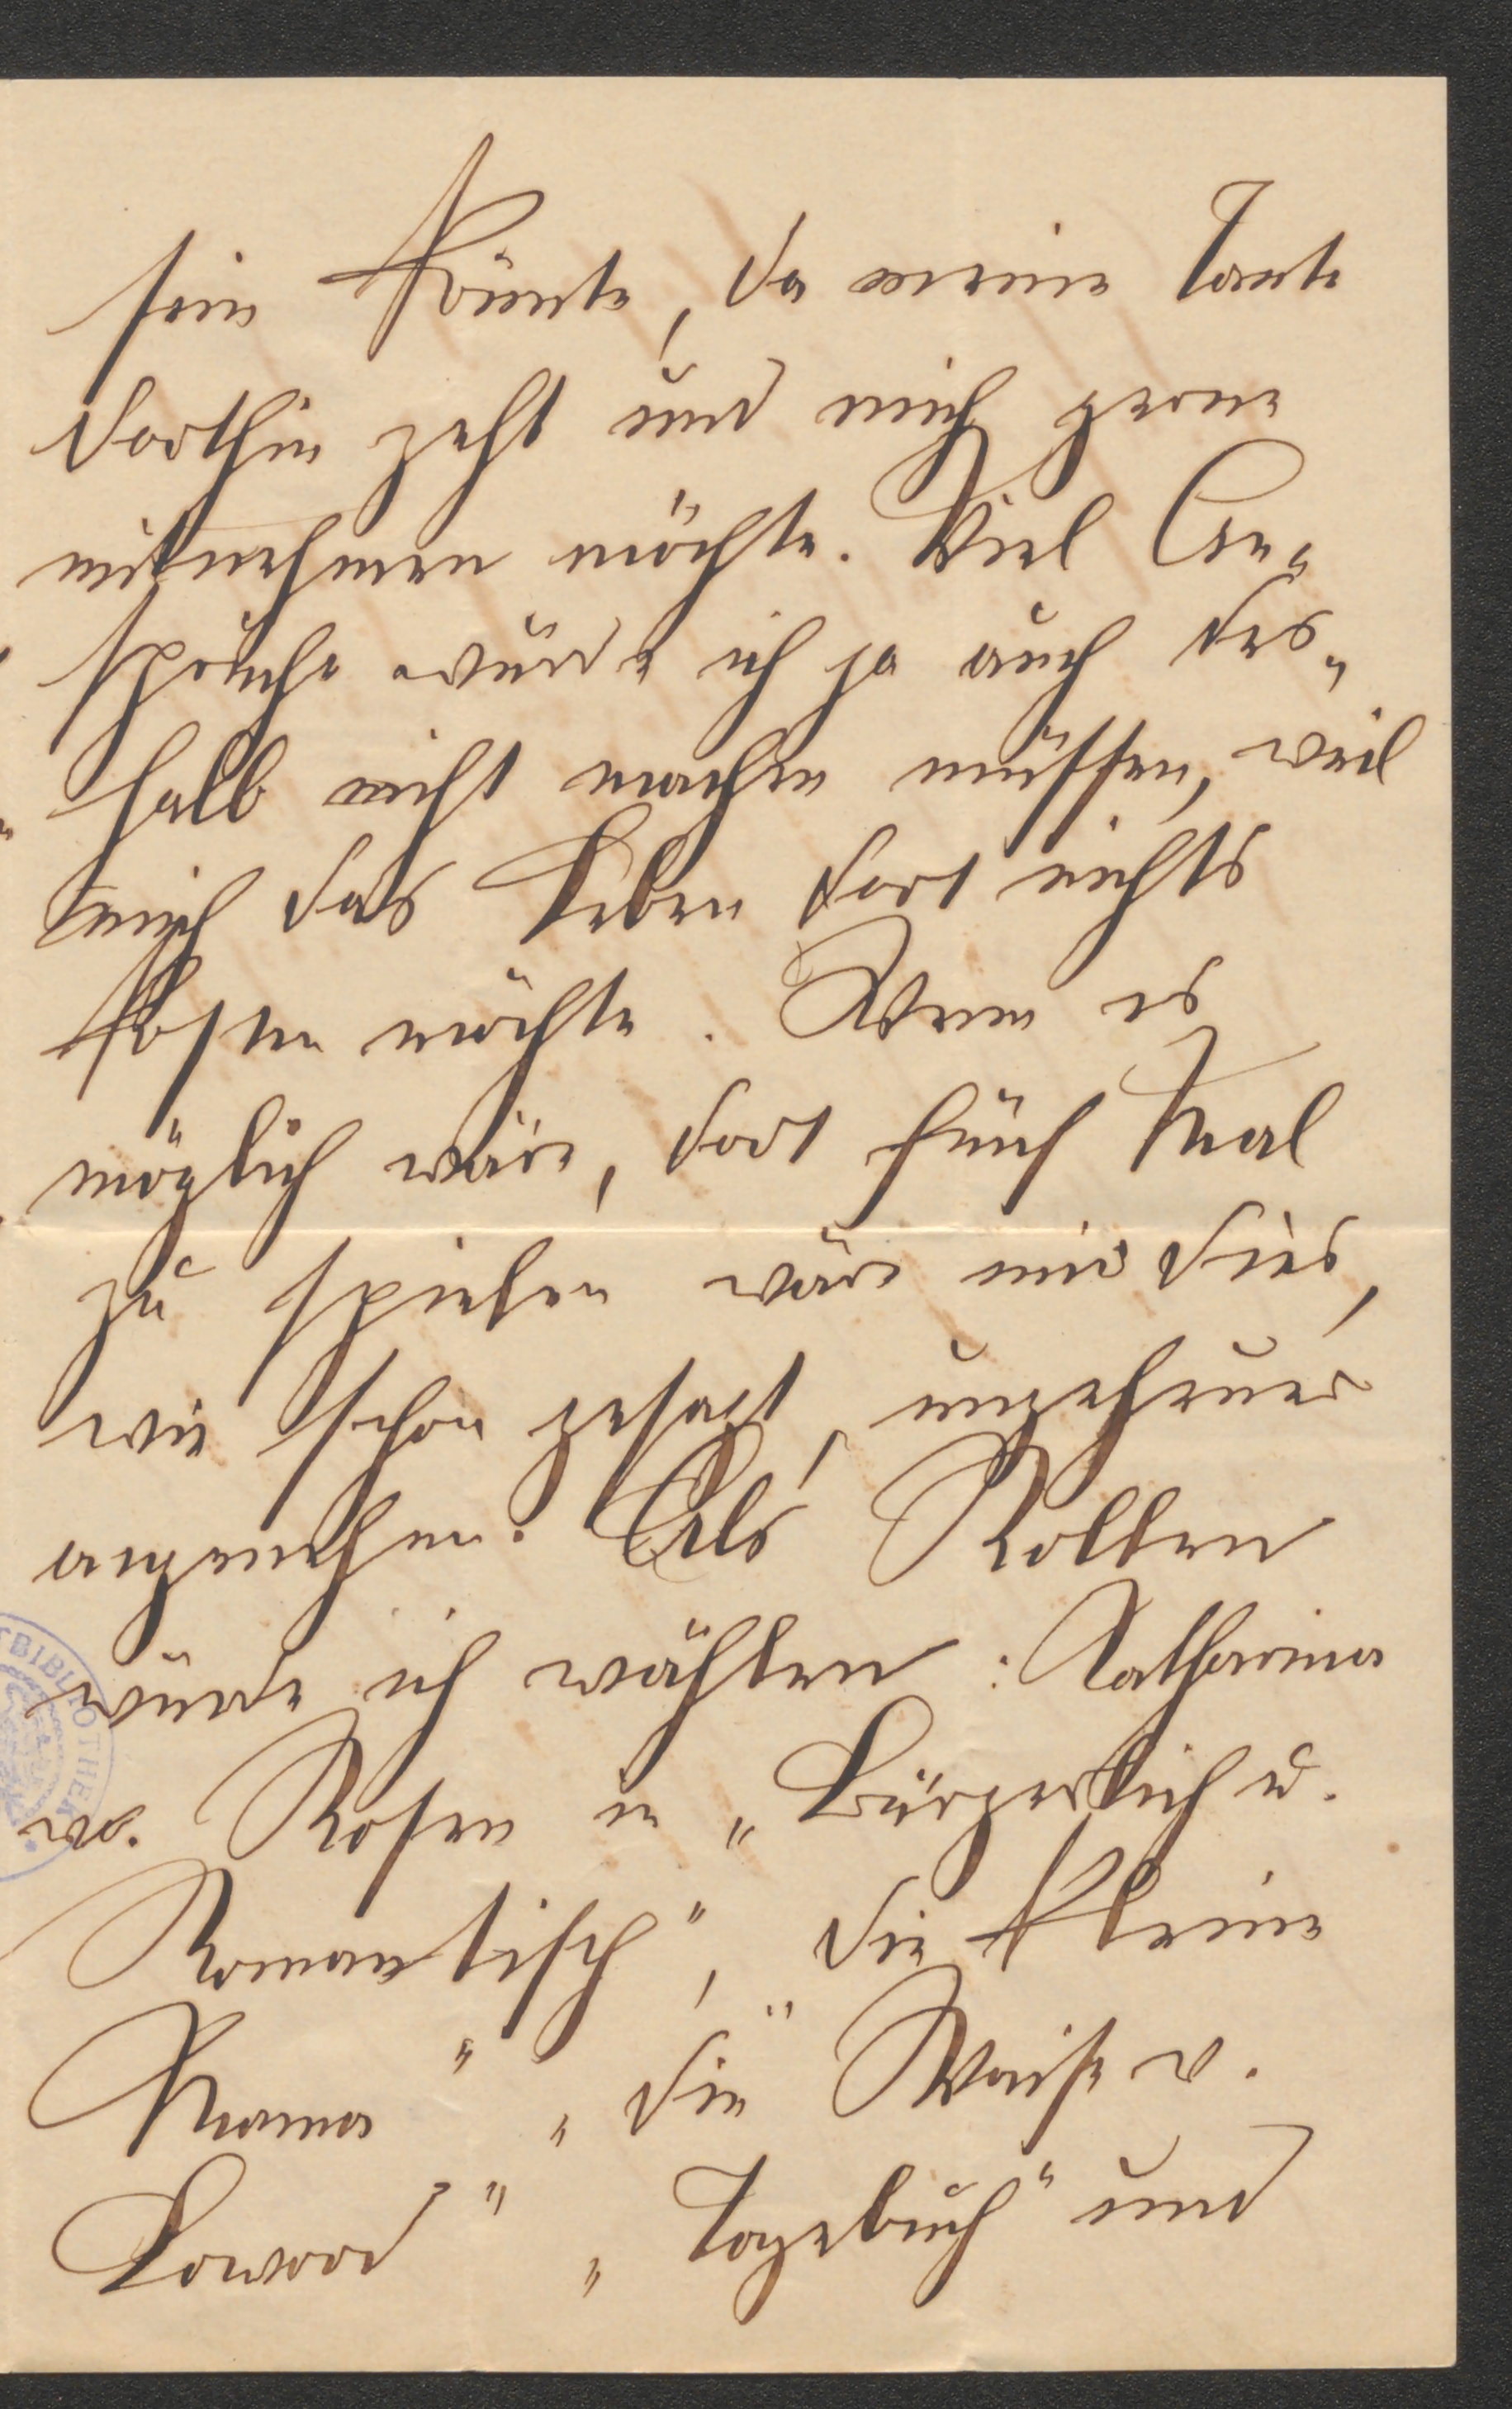 sein könnte, da meine Tante
dorthin geht und mich gerne
mitnehmen möchte. Viel An„
sprüche würde ich ja auch des„
halb nicht machen müssen, weil
mich das Leben dort nichts
kosten möchte. Wenn es
möglich wäre, dort fünf Mal
zu spielen wäre mir dies,
wie schon gesagt, ungeheuer
angenehm. Als Rollen
würde ich wählen: Katharina
v. Rosen in „Bürgerlich u.
Romantisch", die kleine
Mama" „die Waise v.
Lowood" „Tagebuch" und
BIBLIOTHEK